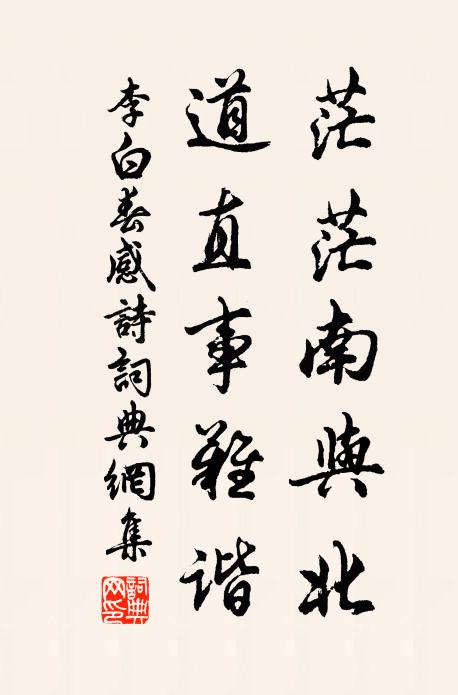 茫茫南與北
道直事難谐
李白春感詩詞典網集
詞典
网印